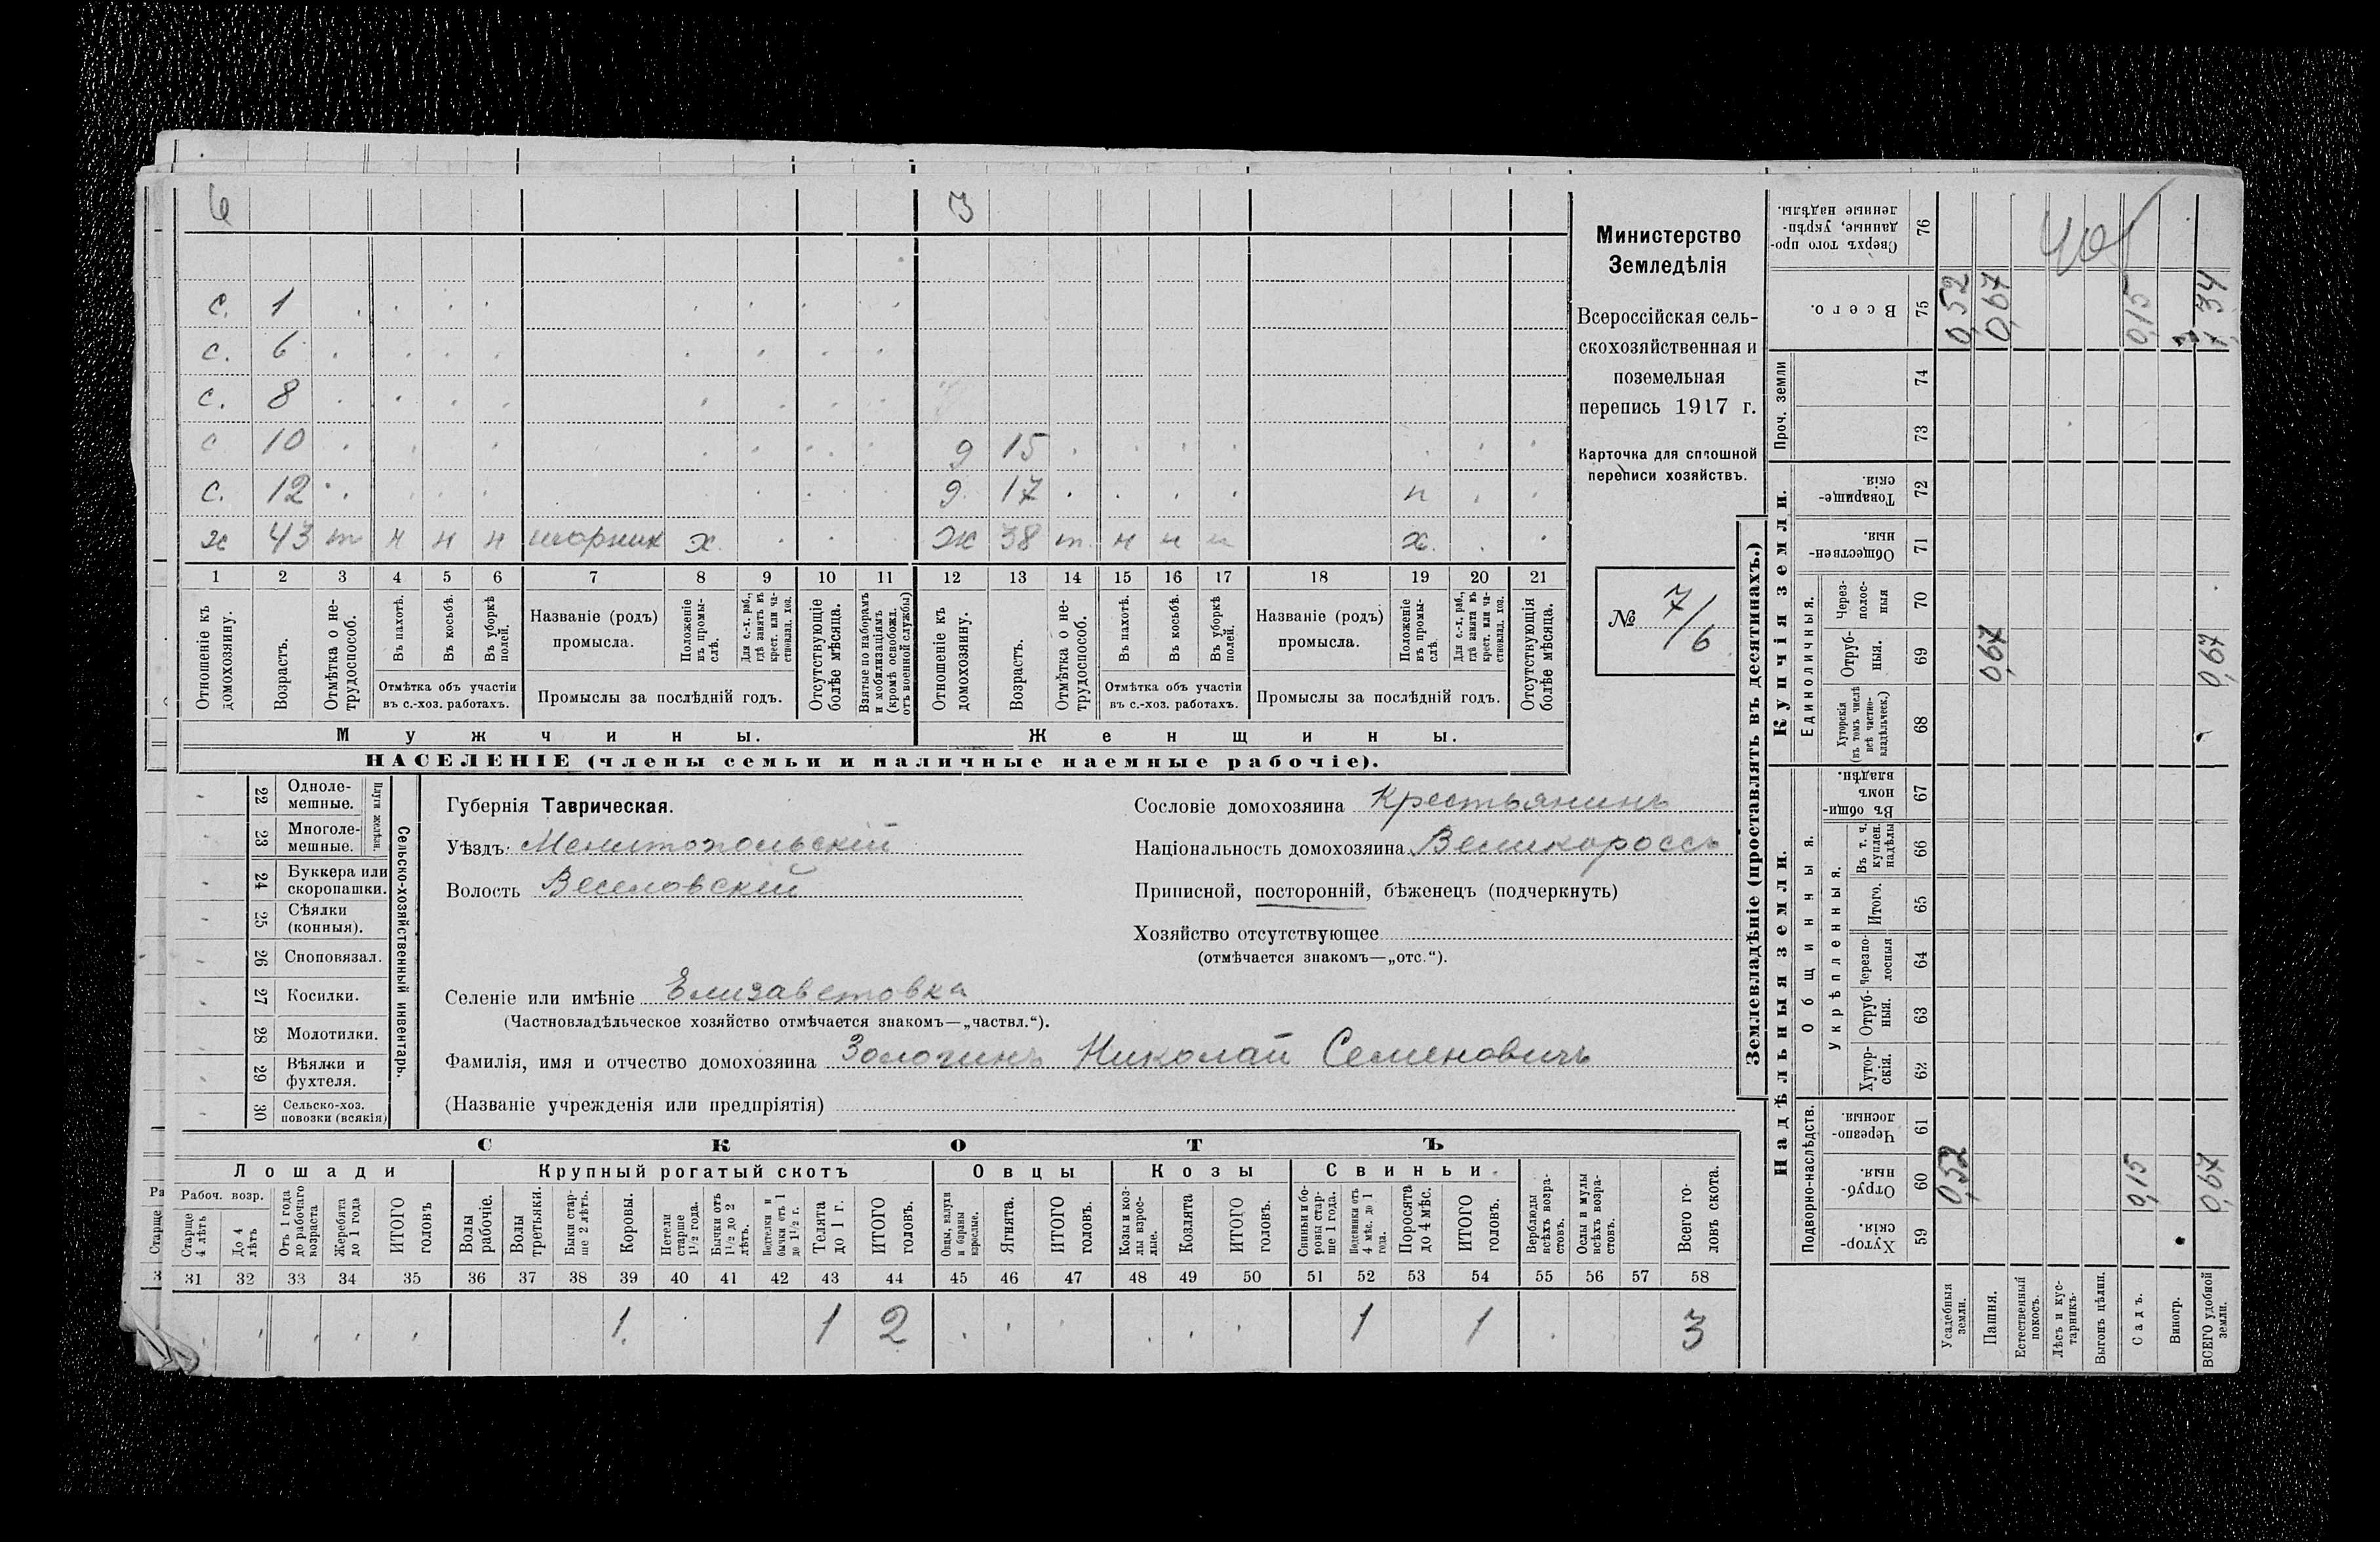 6 3
с. 1
с. 6
с. 8
с 10 д 15
с. 12 д. 17 п
х 43 т н н н шорник х. ж 38 т. н н н х.
1 2 3 4 5 6 7 8 9 10 11 12 13 14 15 16 17 18 19 20 21
Отношеніе къ домохозяину.
Возрастъ.
Отмѣтка о нетрудоспособ.
Въ пахотѣ.
Въ косьбѣ.
Въ уборкѣ полей.
Отмѣтка объ участіи въ с.-хоз. работахъ.
Названіе (родъ) промысла.
Положеніе въ промыслѣ.
Для с.-х. раб., гдѣ занятъ въ крест. или частновлад. хоз.
Промыслы за послѣдній годъ.
Отсутствующіе болѣе мѣсяца.
Взятые по наборамъ и мобилизаціямъ (кромѣ освобожд. отъ военной службы)
Отношеніе къ домохозяину.
Возрастъ.
Отмѣтка о нетрудоспособ.
Въ пахотѣ.
Въ косьбѣ.
Въ уборкѣ полей.
Отмѣтка объ участіи въ с.-хоз. работахъ.
Названіе (родъ) промысла.
Положеніе въ промыслѣ
Для с.-х. раб., гдѣ занята въ крест. или частновлад. хоз.
Промыслы за послѣдній годъ.
Отсутствующія болѣе мѣсяца.
Мужчины. Женщины.
НАСЕЛЕНІЕ (члены семьи и наличные наемные рабочіе).
Министерство
Земледѣлія
Всероссійская сель-
скохозяйственная и
поземельная
перепись 1917 г.
Карточка для сплошной
переписи хозяйствъ.
№ 7/6
22 Одноле-
мешные.
23 Многоле-
мешные.
Плуги желѣзн.
24 Буккера или
скоропашки.
25 Сѣялки
(конныя).
26 Сноповязал.
27 Косилки.
28 Молотилки.
29 Вѣялки и
фухтеля.
30 Сельско-хоз.
повозки (всякія)
Сельско-хозяйственный инвентарь.
Губернія Таврическая.
Уѣздъ Мелитопольскій
Волость Веселовскій
Сословіе домохозяина Крестьянинъ
Національность домохозяина Великороссъ
Приписной, посторонній, бѣженецъ (подчеркнуть)
Хозяйство отсутствующее
(отмѣчается знакомъ—„отс.“).
Селеніе или имѣніе Елизаветовка
(Частновладѣльческое хозяйство отмѣчается знакомъ—„частвл.“).
Фамилія, имя и отчество домохозяина Золочинъ Николай Семеновичъ
(Названіе учрежденія или предпріятія)
СКОТЪ
Лошади Крупный рогатый скотъ Овцы Козы Свиньи.
Рабоч. возр.
Старше 4 лѣтъ
До 4 лѣтъ
Отъ 1 года до рабочаго возраста
Жеребята до 1 года
ИТОГО головъ
Волы рабочіе.
Волы третьяки.
Быки старше 2 лѣтъ.
Коровы.
Нетели старше 1 1/2 года.
Бычки отъ 1 1/2 до 2 лѣтъ.
Нетелки и бычки отъ 1 до 1 1/2 г.
Телята до 1 г.
ИТОГО головъ.
Овцы, валухи и бараны взрослые.
Ягнята.
ИТОГО головъ.
Козы и козлы взрослые.
Козлята
ИТОГО головъ.
Свиньи и боровы старше 1 года.
Подсвинки отъ 4 мѣс. до 1 года.
Поросята до 4 мѣс.
ИТОГО головъ.
Верблюды всѣхъ возрастовъ.
Ослы и мулы всѣхъ возрастовъ.
Всего головъ скота.
31 32 33 34 35 36 37 38 39 40 41 42 43 44 45 46 47 48 49 50 51 52 53 54 55 56 57 58
1. 1 2 1 1 3
Землевладѣніе (проставлять въ десятинахъ.)
Надѣльныя земли. Купчія земли. Проч. земли
Подворно-наслѣдств. Общинныя. Единоличныя.
Укрѣпленныя.
Хуторскія. 59
Отрубныя. 60
Черезполосныя. 61
Хуторскія. 62
Отрубныя. 63
Черезполосныя 64
Итого. 65
Въ т. ч. куплен. надѣлы 66
Въ общинномъ владѣн. 67
Хуторскія (въ томъ числѣ всѣ частновладѣльческ.) 68
Отрубныя. 69
Черезполосныя 70
Общественныя. 71
Товарищескія. 72
73
74
Всего. 75
Сверхъ того проданные, укрѣпленные надѣлы. 76
Усадебныя земли. 0,52 0,52
Пашня. 0,67 0,67
Естественный покосъ.
Лѣсъ и кустарникъ.
Выгонъ цѣлин.
Садъ. 0,15 0,15
Виногр.
ВСЕГО удобной земли. 0,67 0,67 1,34